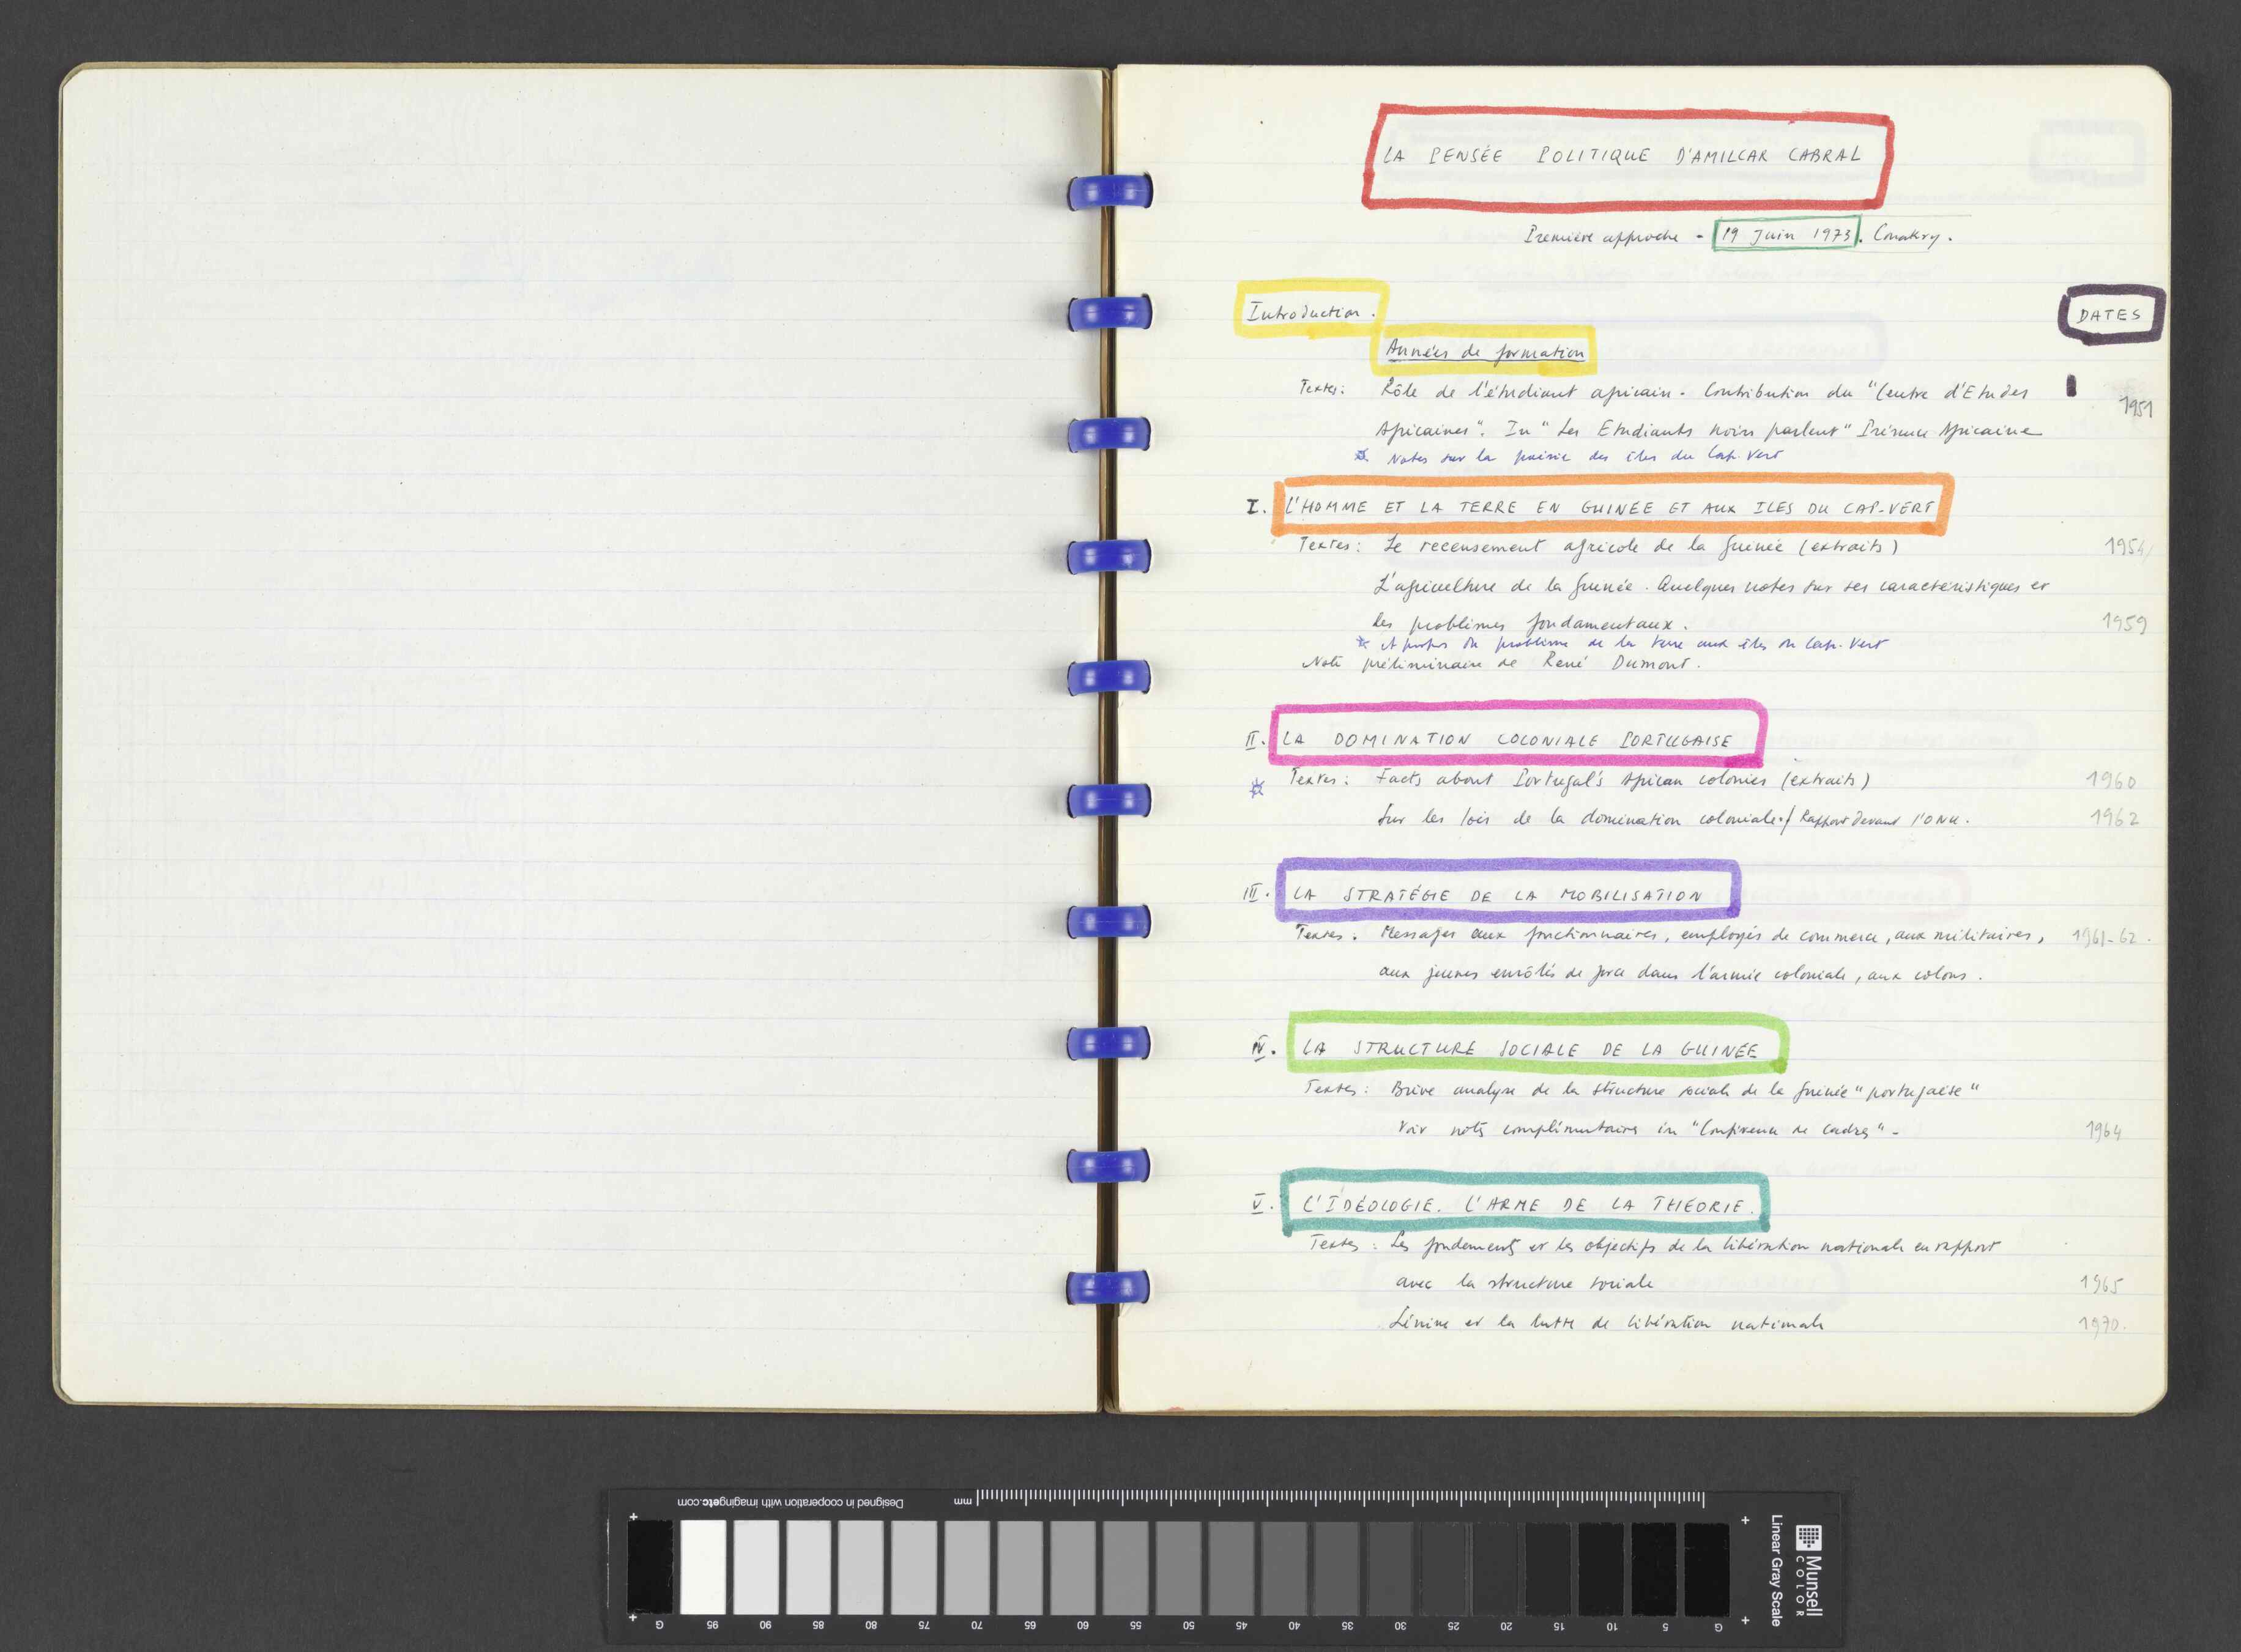 LA PENSÉE POLITIQUE D'AMILCAR CABRAL
Première approche - 19 Juin 1973. Conakry.
Introduction.
DATES
Années de formation
Textes: Rôle de l'étudiant africain. Contribution du "Centre d'Etudes
1951
Africaines". In "Les Etudiants noirs parlent" Présence Africaine
* Notes sur la poésie des îles du Cap-Vert
I. L'HOMME ET LA TERRE EN GUINÉE ET AUX ILES DU CAP-VERT
Textes: Le recensement agricole de la Guinée (extraits) 1954
L'agriculture de la Guinée. Quelques notes sur ses caractéristiques et
les problèmes fondamentaux. 1959
* A propos du problème de la terre aux îles du Cap-Vert
Note préliminaire de René Dumont.
II. LA DOMINATION COLONIALE PORTUGAISE
* Textes: Facts about Portugal's African colonies (extraits) 1960
Sur les lois de la domination coloniale./ Rapport devant l'ONU. 1962
III. LA STRATÉGIE DE LA MOBILISATION
Textes. Messages aux fonctionnaires, employés de commerce, aux militaires, 1961-62.
aux jeunes enrôlés de force dans l'armée coloniale, aux colons.
IV. LA STRUCTURE SOCIALE DE LA GUINÉE
Textes: Brève analyse de la structure sociale de la Guinée "portugaise"
Voir notes complémentaires in "Conférence de cadres" - 1964
V. L'IDÉOLOGIE. L'ARME DE LA THÉORIE.
Textes: Les fondements et les objectifs de la libération nationale en rapport
avec la structure sociale 1965
Lénine et la lutte de libération nationale 1970.
Designed in cooperation with imagingetc.com
mm
Munsell
COLOR
Linear Gray Scale
G 95 90 85 80 75 70 65 60 55 50 45 40 35 30 25 20 15 10 5 G